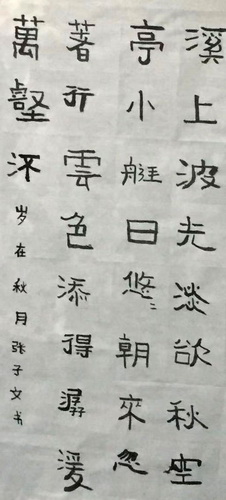 溪上波光淡欲秋空
亭小艇日悠々朝來忽
著行雲色添得潺湲
萬壑流岁在秋月张子文书